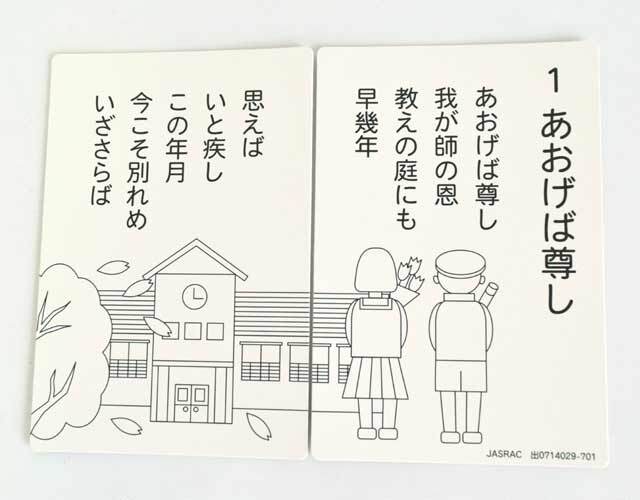 1 あおげば尊し
あおげば尊し
我が師の恩
教えの庭にも
早幾年
思えば
いと疾し
この年月
今こそ別れめ
いざさらば
JASRAC 出0714029-701